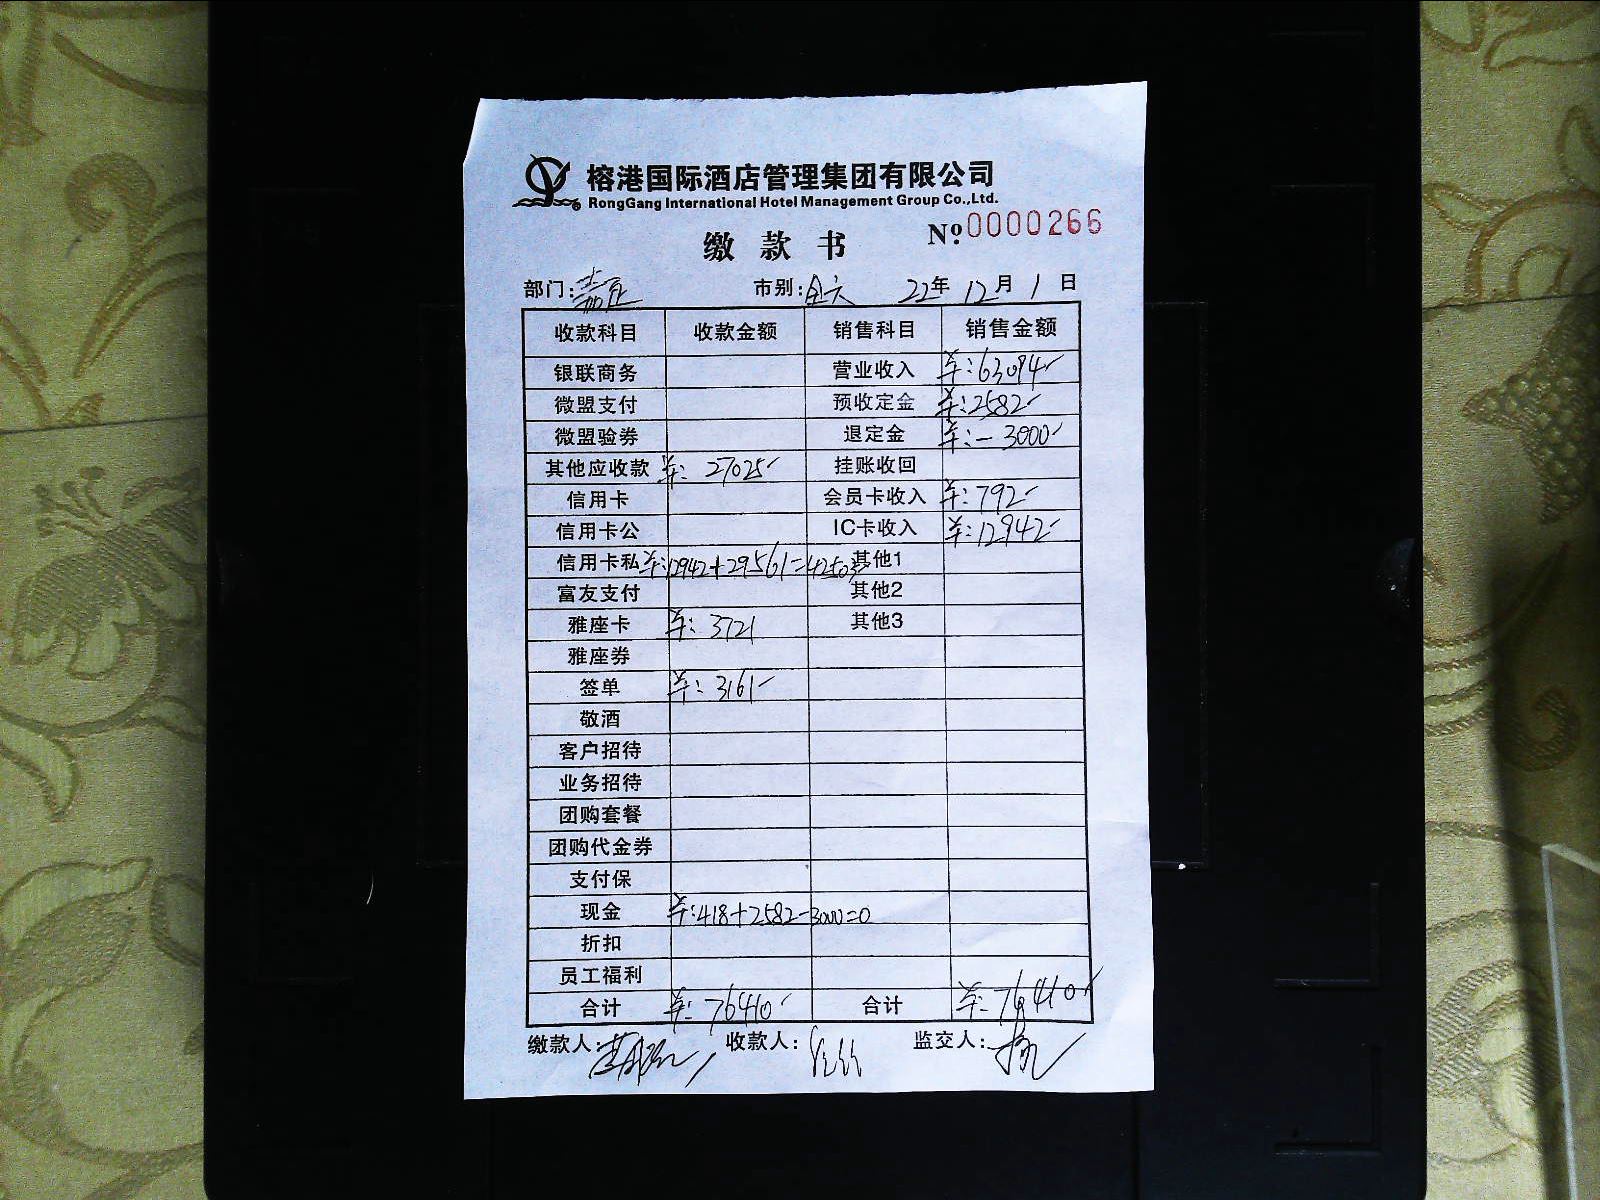 榕港国际酒店管理集团有限公司
RongGang International Hotel Management Group Co.,Ltd.
缴款书 No.0000266
部门: 市别: 22年12月1日
收款科目 收款金额 销售科目 销售金额
银联商务 营业收入 羊:63094
微盟支付 预收定金 羊:2582
微盟验券 退定金 羊:-3000
其他应收款 羊:27025 挂账收回
信用卡 会员卡收入 羊:792
信用卡公 IC卡收入 羊:12942
信用卡私 羊:12942+29561=42503 其他1
富友支付 其他2
雅座卡 羊:3721 其他3
雅座券
签单 羊:3161
敬酒
客户招待
业务招待
团购套餐
团购代金券
支付保
现金 羊:418+2582-3000=0
折扣
员工福利
合计 羊:76410 合计 羊:76410
缴款人: 收款人: 监交人: